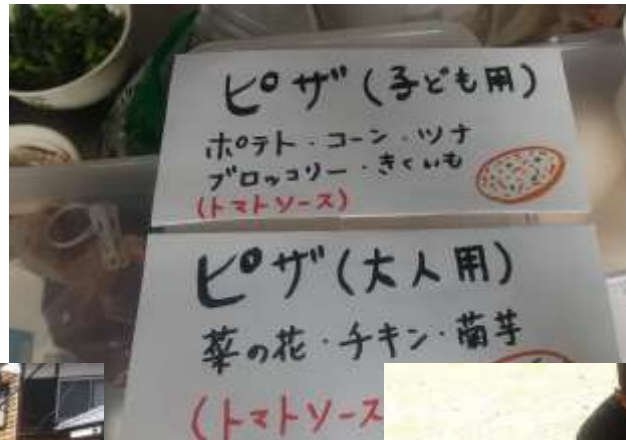 ピザ(子ども用)
ポテト・コーン・ツナ
ブロッコリー・きくいも
(トマトソース)
ピザ(大人用)
菜の花・チキン・菊芋
(トマトソース